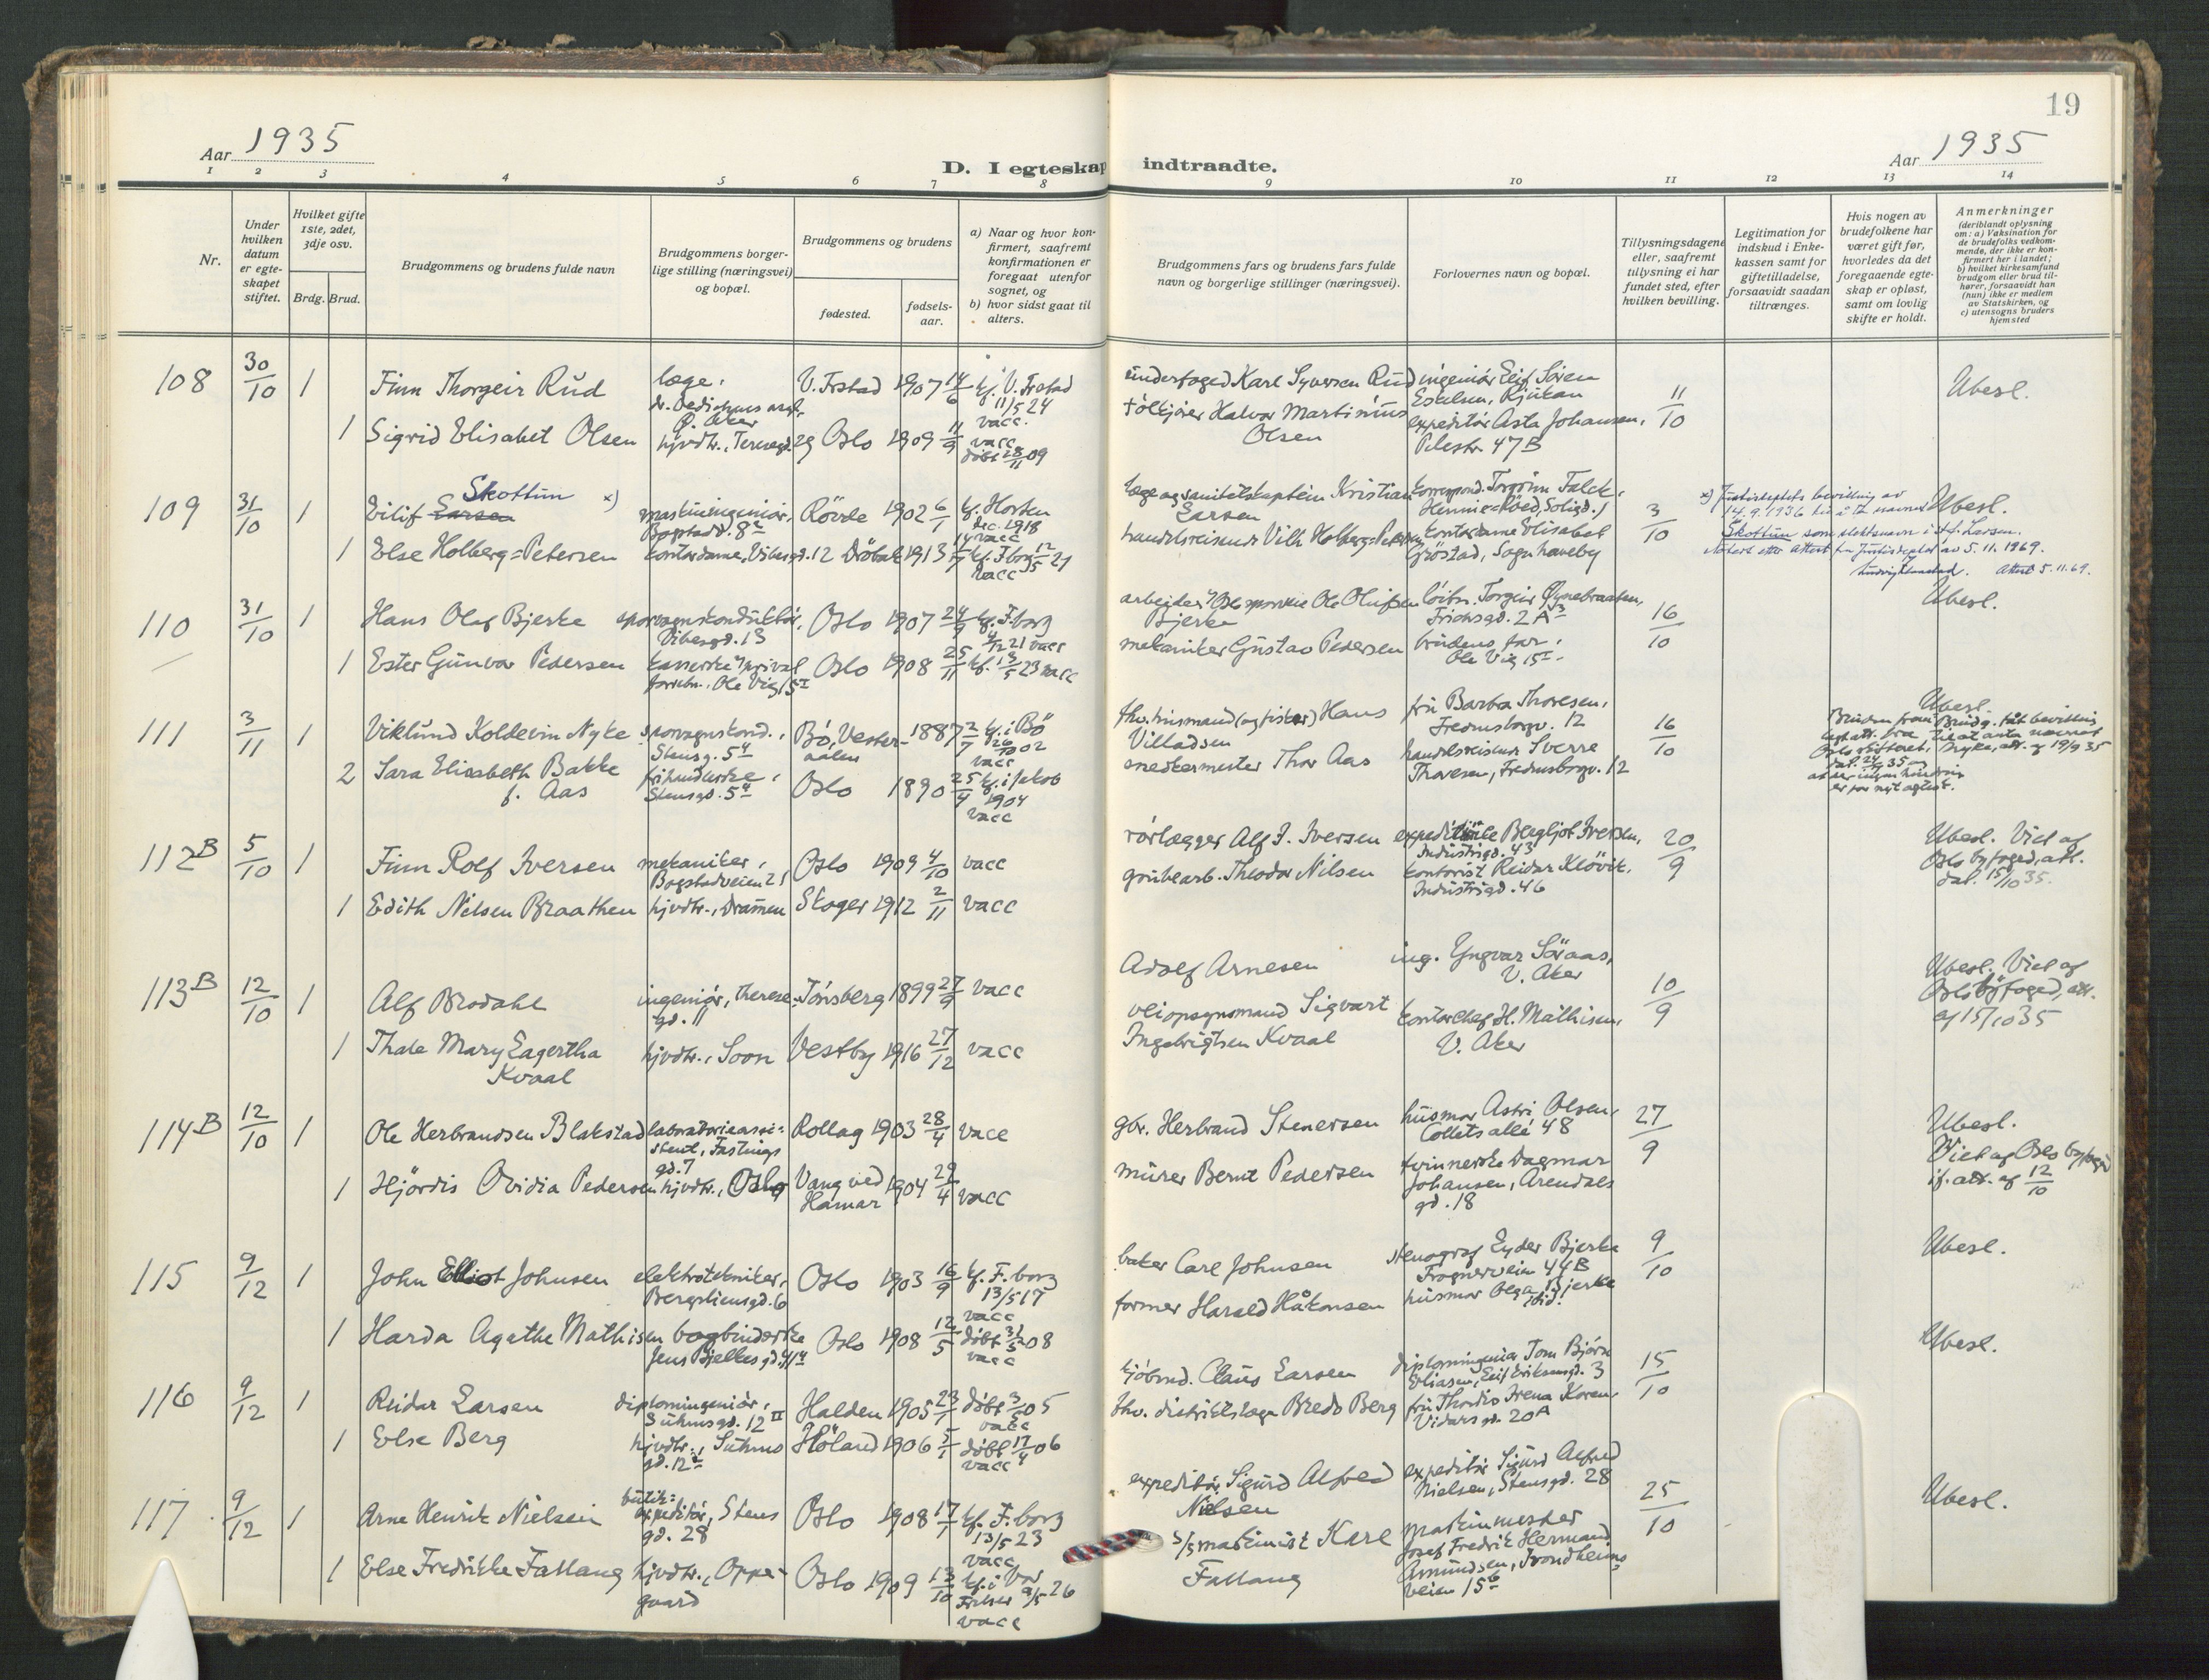 19
Aar 1935
D. I egteskap indtraadte.
Aar 1935
1 2 3 4 5 6 7 8 9 10 11 12 13 14
Nr.
Under hvilken datum er egteskapet stiftet.
Hvilket gifte 1ste, 2det, 3dje osv.
Brdg. Brud.
Brudgommens og brudens fulde navn
Brudgommens borgerlige stilling (næringsvei) og bopæl.
Brudgommens og brudens
fødested.
fødselsaar.
a) Naar og hvor konfirmert, saafremt konfirmationen er foregaat utenfor sognet, og
b) hvor sidst gaat til alters.
Brudgommens fars og brudens fars fulde navn og borgerlige stillinger (næringsvei).
Forlovernes navn og bopæl.
Tillysningsdagene eller, saafremt tillysning ei har fundet sted, efter hvilken bevilling.
Legitimation for indskud i Enkekassen samt for giftetilladelse, forsaavidt saadan tiltrænges.
Hvis nogen av brudefolkene har været gift før, hvorledes da det foregaaende egteskap er opløst, samt om lovlig skifte er holdt.
Anmerkninger
(deriblandt oplysning om: a) Vaksination for de brudefolks vedkommende, der ikke er konfirmert her i landet; b) hvilket kirkesamfund brudgom eller brud tilhører, forsaavidt han (hun) ikke er medlem av Statskirken, og c) utensogns bruders hjemsted
108 30/10 1 Finn Thorgeir Rud læge, V. Frstad 1907 14/6 kf. V. Frstad 11/5 24 vacc.
underfoged Karl Syversen Rud ingeniör Leif Sören Eskelsen, Rjukan 11/10 Ubesl.
1 Sigrid Elisabet Olsen hjvdtr., 29 Oslo 1909 11/9 vacc döbt 28/11 09
Halvor Martinius Olsen expeditör Asta Johansen, Pilestr. 47 B
109 31/10 1 Eilif Larsen Skottun x) maskiningeniör, Bogstadv. 8 Rövde 1902 6/1 kf. Horten dec. 1918 vacc
læge og sanitetskaptein Kristian Larsen korrespond. Torgrim Falck, 3/10 Ubesl.
x) Justisdeptets bevilling av 14.9.1936 til å ta navnet Skottun som slektsnavn i st.f. Larsen.
5.11.1969. Attest 5.11.69.
1 Else Holberg-Petersen kontordame, Vibesgd. 12 Dröbak 1913 kf. F.borg vacc
handelsreisende Vilh Holberg-Petersen kontordame Elisabet Gröstad, Sogn haveby
110 31/10 1 Hans Olaf Bjerke sporvognskonduktör, Vibesgd. 13 Oslo 1907 24/9 kf. F.borg 4/12 21 vacc
arbejder Ole Olufsen Bjerke Torgeir Öynebraaten, Frichsgd. 2 A 16/10 Ubesl.
1 Ester Gunvor Pedersen Ole Vig 15 I Oslo 1908 25/11 kf. 23 vacc
mekaniker Gustav Pedersen brudens far, Ole Vig 15 I.
111 3/11 1 Viklund Koldevin Nyke sporvognskond., Stensg. 5 Bö, Vesteraalen 1887 2/7 kf. i Bö 1902 vacc
fhv. husmand (og fisker) Hans Villadsen fru Barbra Thoresen, Fredensborgv. 12 16/10 Ubesl.
2 Sara Elisabeth Bakke f. Aas Stensgd. 5 Oslo 1890 25/4 kf. i Jakob 1904 vacc
snedkermester Thor Aas handelsreisende Sverre Thoresen, Fredensborgv. 12
112 B 5/10 1 Finn Rolf Iversen mekaniker, Bogstadveien 25 Oslo 1909 4/10 vacc
rörlægger Alf J. Iversen Bergljot Iversen, Industrigd. 43 20/9 Ubesl. Viet af Oslo byfoged, att. dat. 15/10 35.
1 Edith Nilsen Braathen hjvdtr., Drammen Skoger 1912 2/11 vacc
grubearb. Theodor Nilsen kontorist Reidar Klövik, Industrigd. 46
113 B 12/10 1 Alf Brodahl ingeniör, Theresegd. 11 Tönsberg 1899 27/9 vacc
Adolf Arnesen ing. Yngvar Söraas, V. Aker 10/9 Ubesl. Viet af Oslo byfoged, att. af 15/10 35
1 Thale Mary Lagertha Kvaal hjvdtr., Soon Vestby 1916 27/12 vacc
veiopsynsmand Sigvart Ingebrigtsen Kvaal kontorchef H. Mathisen, V. Aker
114 B 12/10 1 Ole Herbrandsen Blakstad laboratorieassistent, Fastings gd. 7 Rollag 1903 28/4 vacc
gbr. Herbrand Stenersen husmor Astri Olsen, Colletts allé 48 27/9 Ubesl. Viet af Oslo byfoged if. att. af 12/10
1 Hjördis Ovidia Pedersen hjvdtr., Oslo Vang ved Hamar 1904 29/4 vacc
murer Bernt Pedersen Dagmar Johansen, Arendals gd. 18
115 9/12 1 John Elliot Johnsen elektrotekniker, Bergsliensgd. 6 Oslo 1903 16/9 kf. F.borg 13/5 17 vacc
baker Carl Johnsen stenograf Eyder Bjerke Frognerveien 44 B 9/10 Ubesl.
1 Harda Agathe Mathisen bogbinderske Jens Bjelkes gd. 41 Oslo 1908 12/5 döbt 31/5 08 vacc
former Harald Håkonsen husmor Olga Bjerke ibid.
116 9/12 1 Reidar Larsen diplomingeniör, Suhmsgd. 12 II Halden 1905 23/1 döbt 3/5 05 vacc
kjöbmd. Claus Larsen diplomingeniör Tom Björn Eliasen, Leif Eriksensgd. 3 15/10 Ubesl.
1 Else Berg hjvdtr., Suhmsgd. 12 Höland 1906 5/1 döbt 17/4 06 vacc
fhv. distriktslæge Bredo Berg fru Thordis Irena Koren, Vidarsgd. 20 A
117 9/12 1 Arne Henrik Nielsen butikexpeditör, Stensgd. 28 Oslo 1908 17/1 kf. F.borg 13/5 23 vacc
expeditör Sigurd Alfred Nielsen expeditör Sigurd Alfred Nielsen, Stensgd. 28 25/10 Ubesl.
1 Else Fredrikke Fallang hjvdtr., Oppegaard Oslo 1909 13/10 kf. i Vor Frelser 9/5 26 vacc
maskinist Karl Fallang maskinmester Josef Fredrik Hermand Amundsen, Trondheimsveien 15